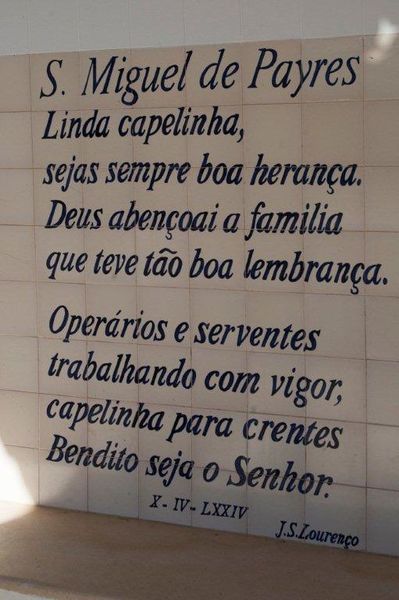 S. Miguel de Payres
Linda capelinha,
sejas sempre boa herança.
Deus abençoai a familia
que teve tão boa lembrança.
Operários e serventes
trabalhando com vigor,
capelinha para crentes
Bendito seja o Senhor.
X - IV - LXXIV
J.S.Lourenço